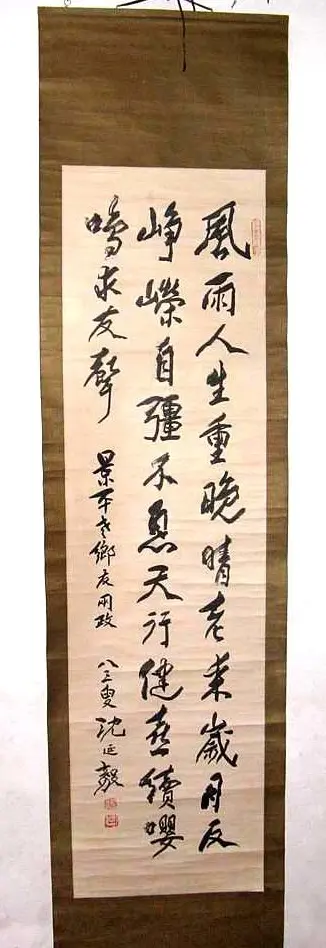 風雨人生重晚晴老来歲月反
峥嶸自彊不息天行健喜續嚶
鳴求友聲
景平老鄉友兩政
八三叟沈延毅